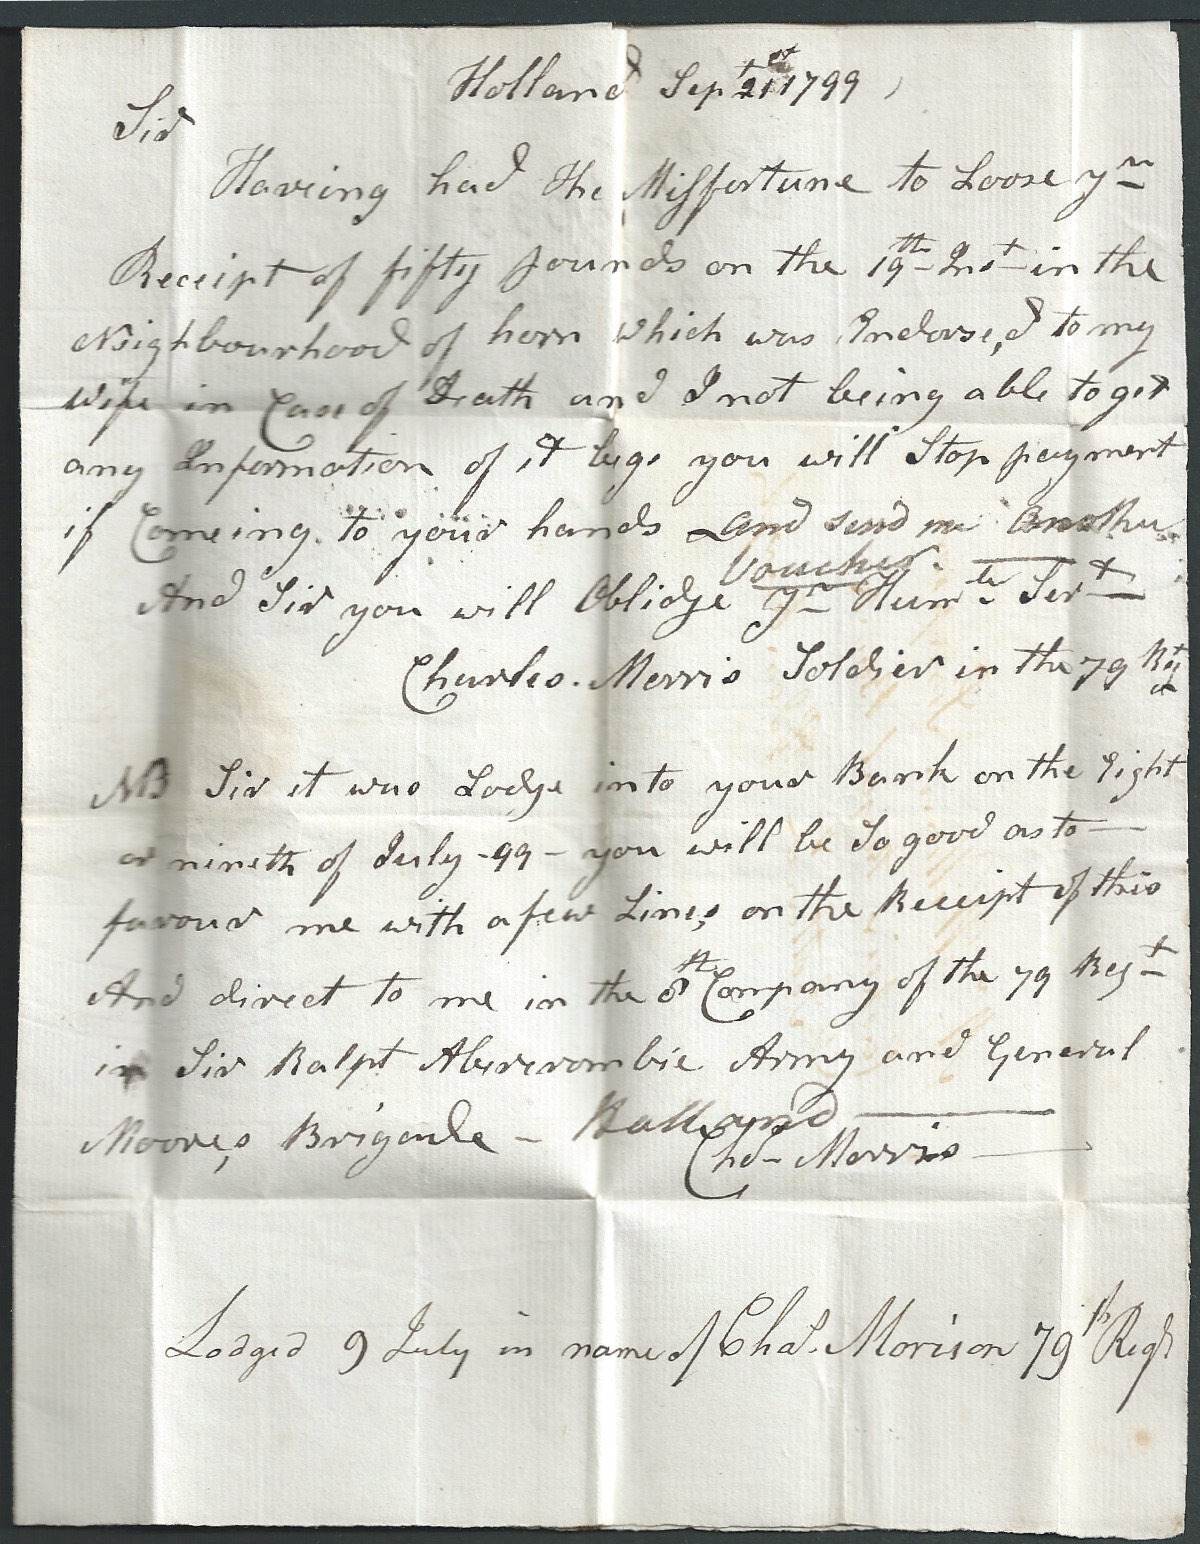 Holland Sept 21st 1799
Sir
Haveing had the Misfortune to Loose yr
Receipt of fifty pounds on the 19th Inst in the
Neighbourhood of horn which was Indorse,d to my
Wife in Case of Death and I not being able to get
any Information of it begs you will Stop payment
if Comeing to your hands and send me another
Voucher.
And Sir you will Oblidge yr Humle Sert
Charles Morris Soldier in the 79 Rgt
NB Sir it was Lodge into your Bank on the Eight
or nineth of July -99- you will be So good as to
favour me with a few Lines on the Receipt of this
And direct to me in the 8th Company of the 79 Regt
in Sir Ralpt Abercrombie Army and General
Moore,s Brigade - Holland
Chas Morris
Lodged 9 July in name of Chas. Morison 79th Regt